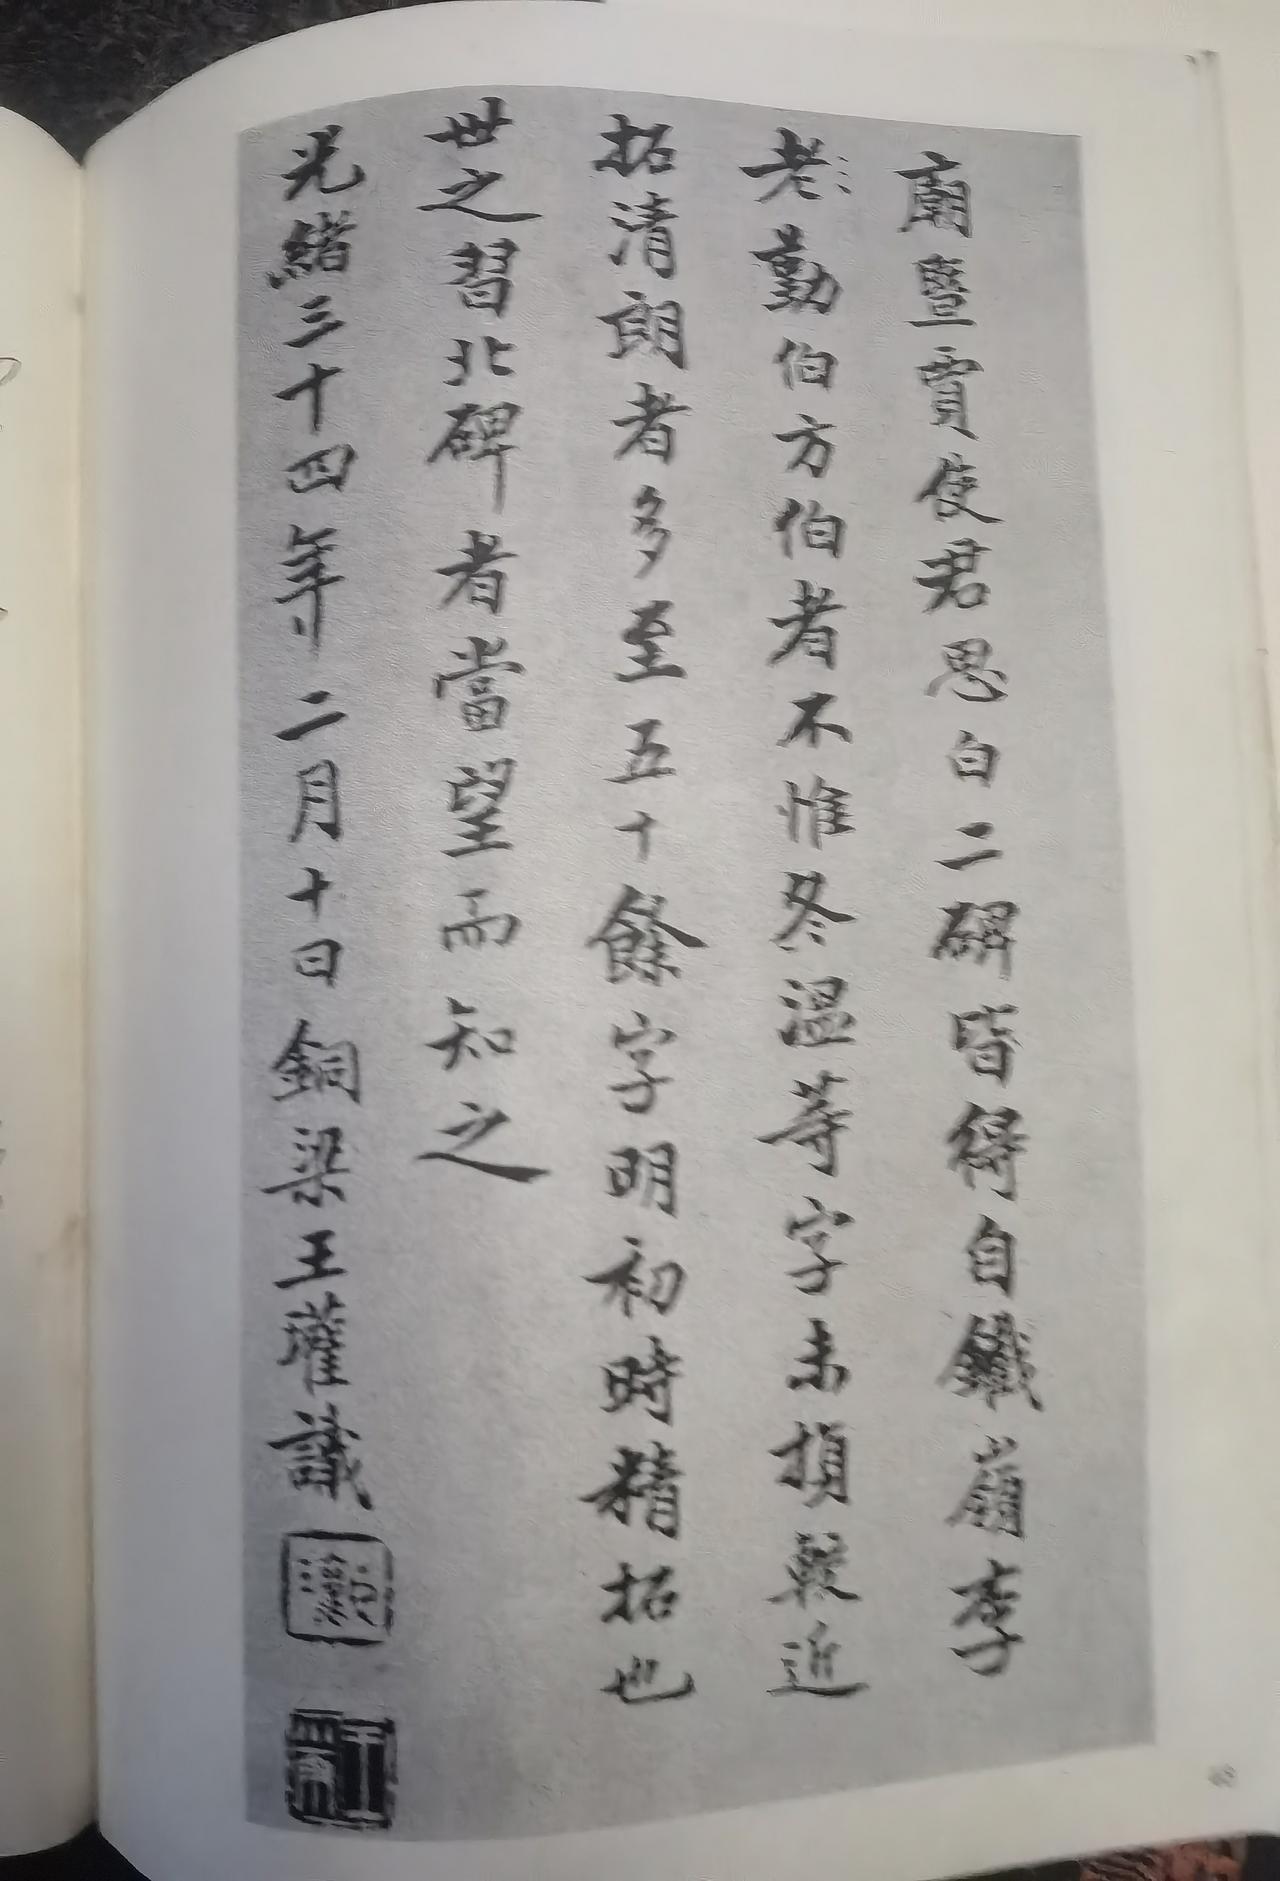 廟暨賈使君思白二碑皆得自鐵嶺李
老〻勤伯方伯者不惟冬温等字未損較近
拓清朗者多至五十餘字明初時精拓也
世之習北碑者當望而知之
光緒三十四年二月十日銅梁王瓘識